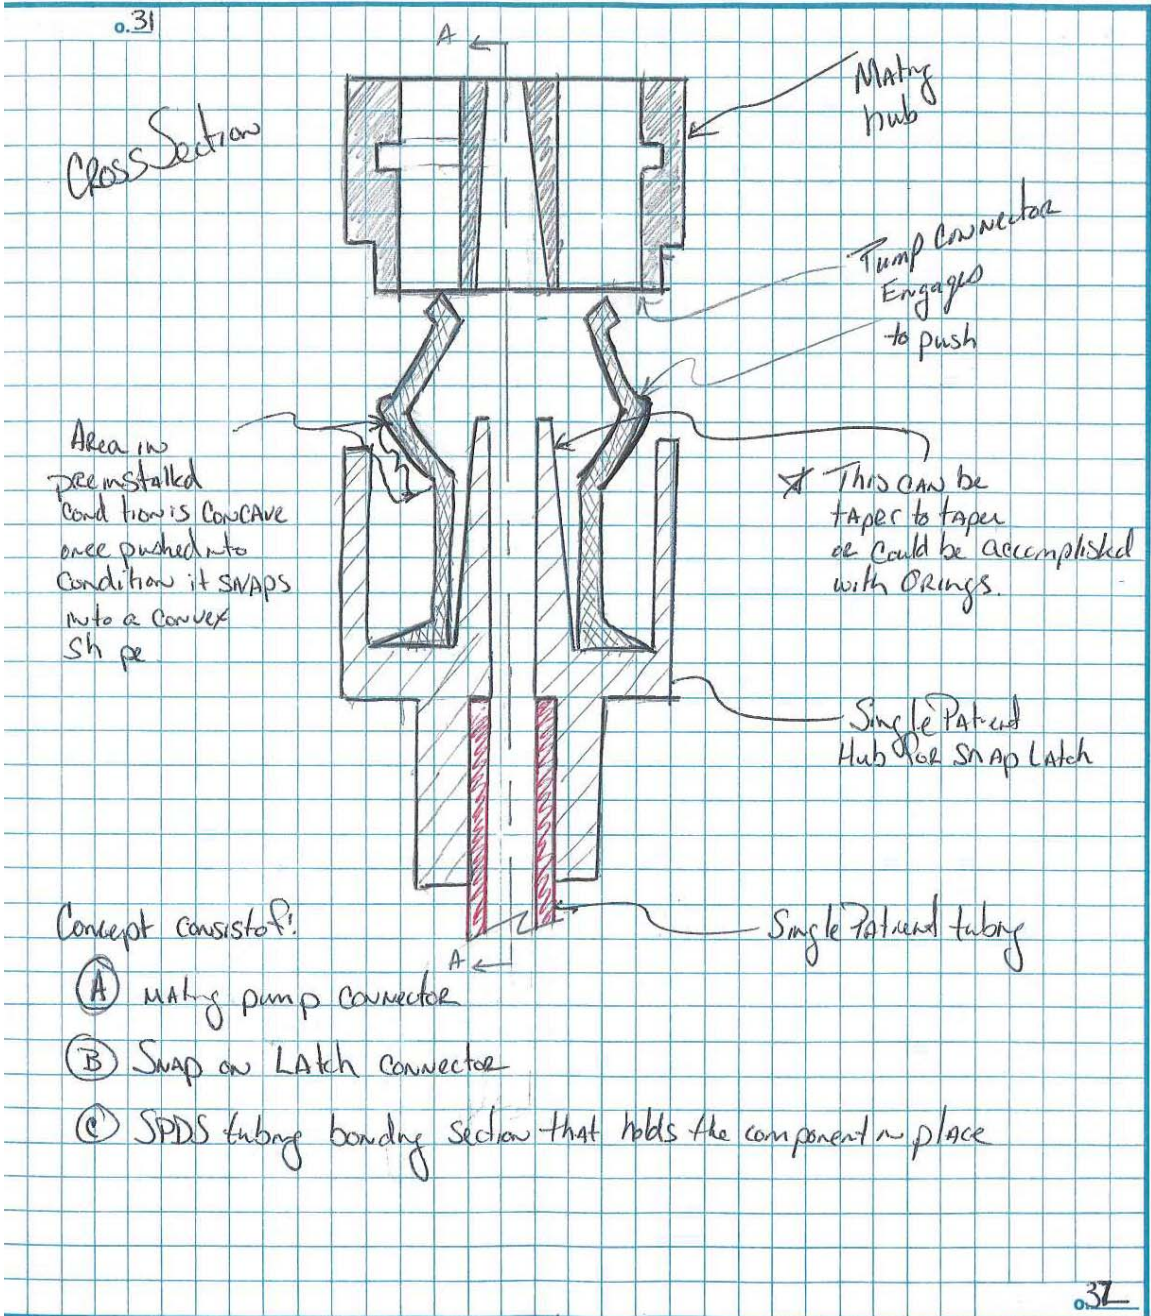 0.31
A
Cross Section
Mating
hub
Pump Connector
Engages
to push
Area in
preinstalled
Condtion is Concave
once pushed into
Condition it SNAPS
into a Convex
Sh pe
This CAN be
tAper to tAper
or Could be accomplished
with ORings.
Single Patient
Hub For SNAp LAtch
Single Patient tubing
A
Concept consist of:
A Mating pump Connector
B SNAP on LAtch Connector
C SPDS tubing bonding section that holds the component in place
0.32